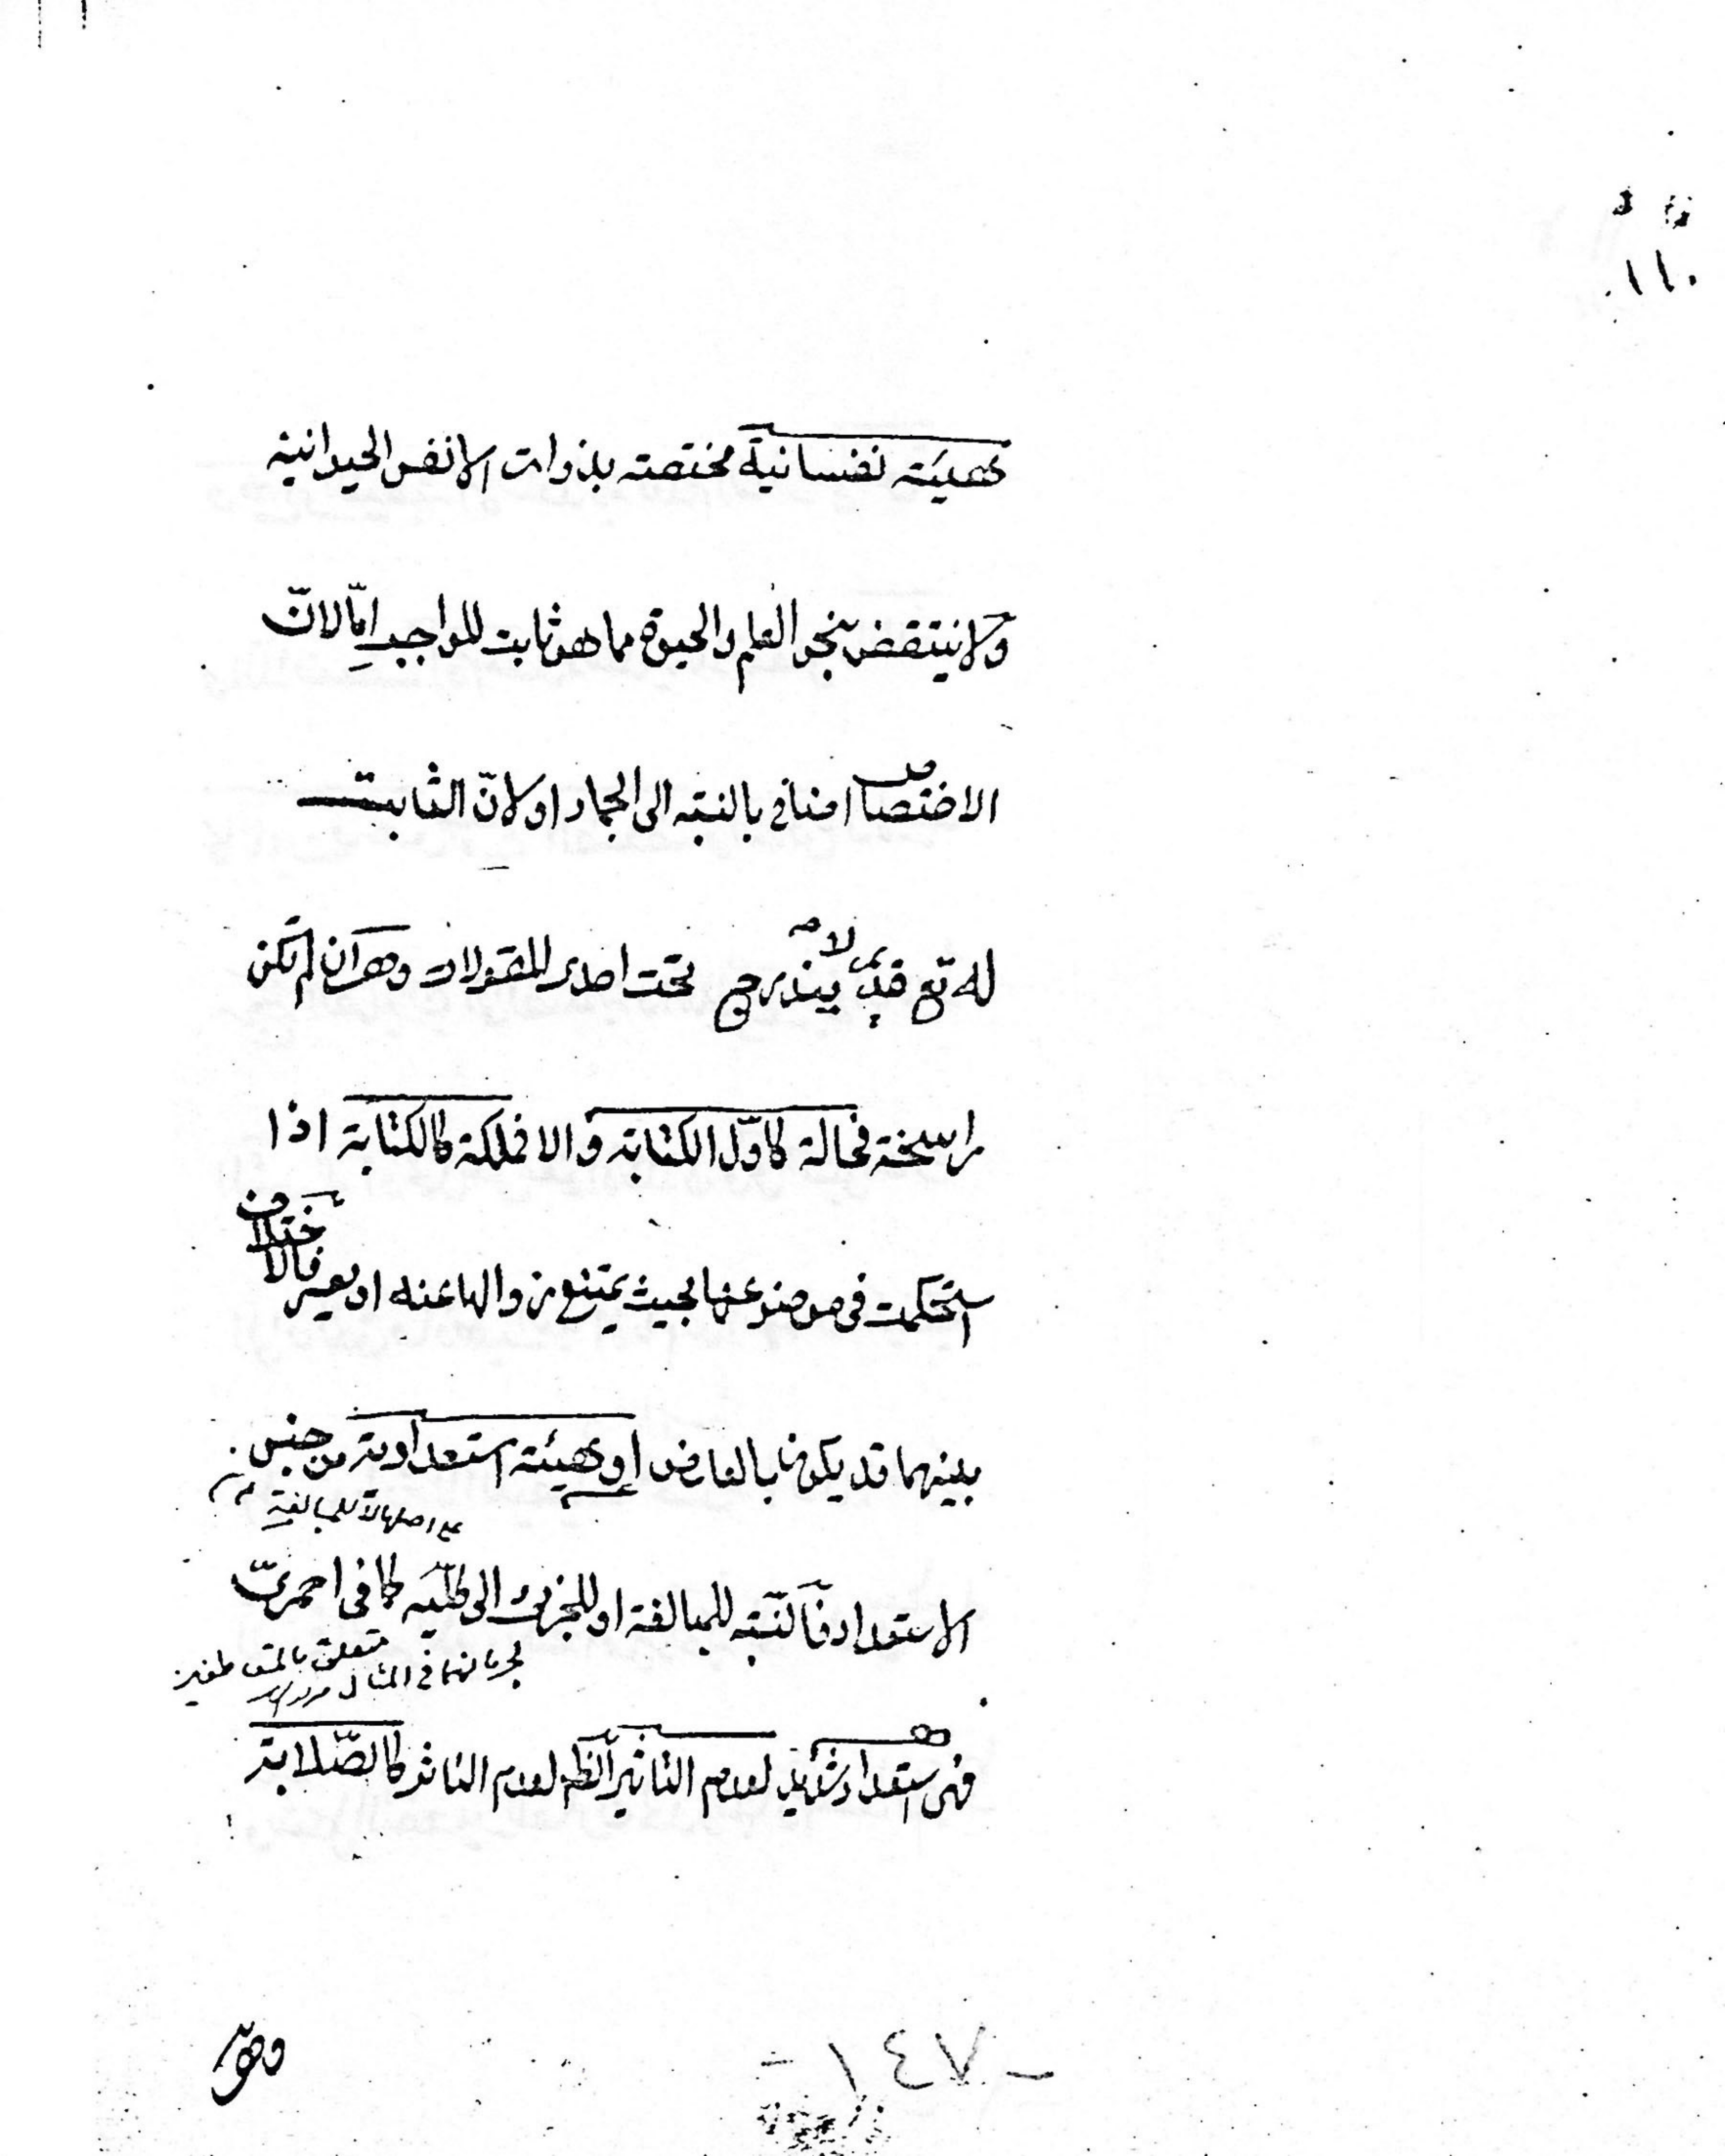 ١١٠
كهيئة نفسانية مختصة بذوات الانفس الحيوانية
ولا ينتقض بنحو العلم والحيوة مما هو ثابت للواجب امّا لانّ
الاختصاص اضافي بالنسبة الى الجماد او لانّ الثابت
له تع قديم لا يندرج تحت احدى المقولات وهو ان لم تكن
راسخة فحالة كاوّل الكتابة والا فملكة كالكتابة اذا
استحكمت في موضوعها بحيث يمتنع زوالها عنه او يعسر فالاختلاف
بينهما قد يكون بالعارض او كهيئة استعدادية من جنس
على اصلها لا للمبالغة
الاستعداد فالنسبة للمبالغة او للجزئى الى كليّه كما في احمرىّ
متعلق
فهى استعداد شديد لعدم التاثير لعدم التاثر كالصّلابة
وهو
- ١٤٧ -